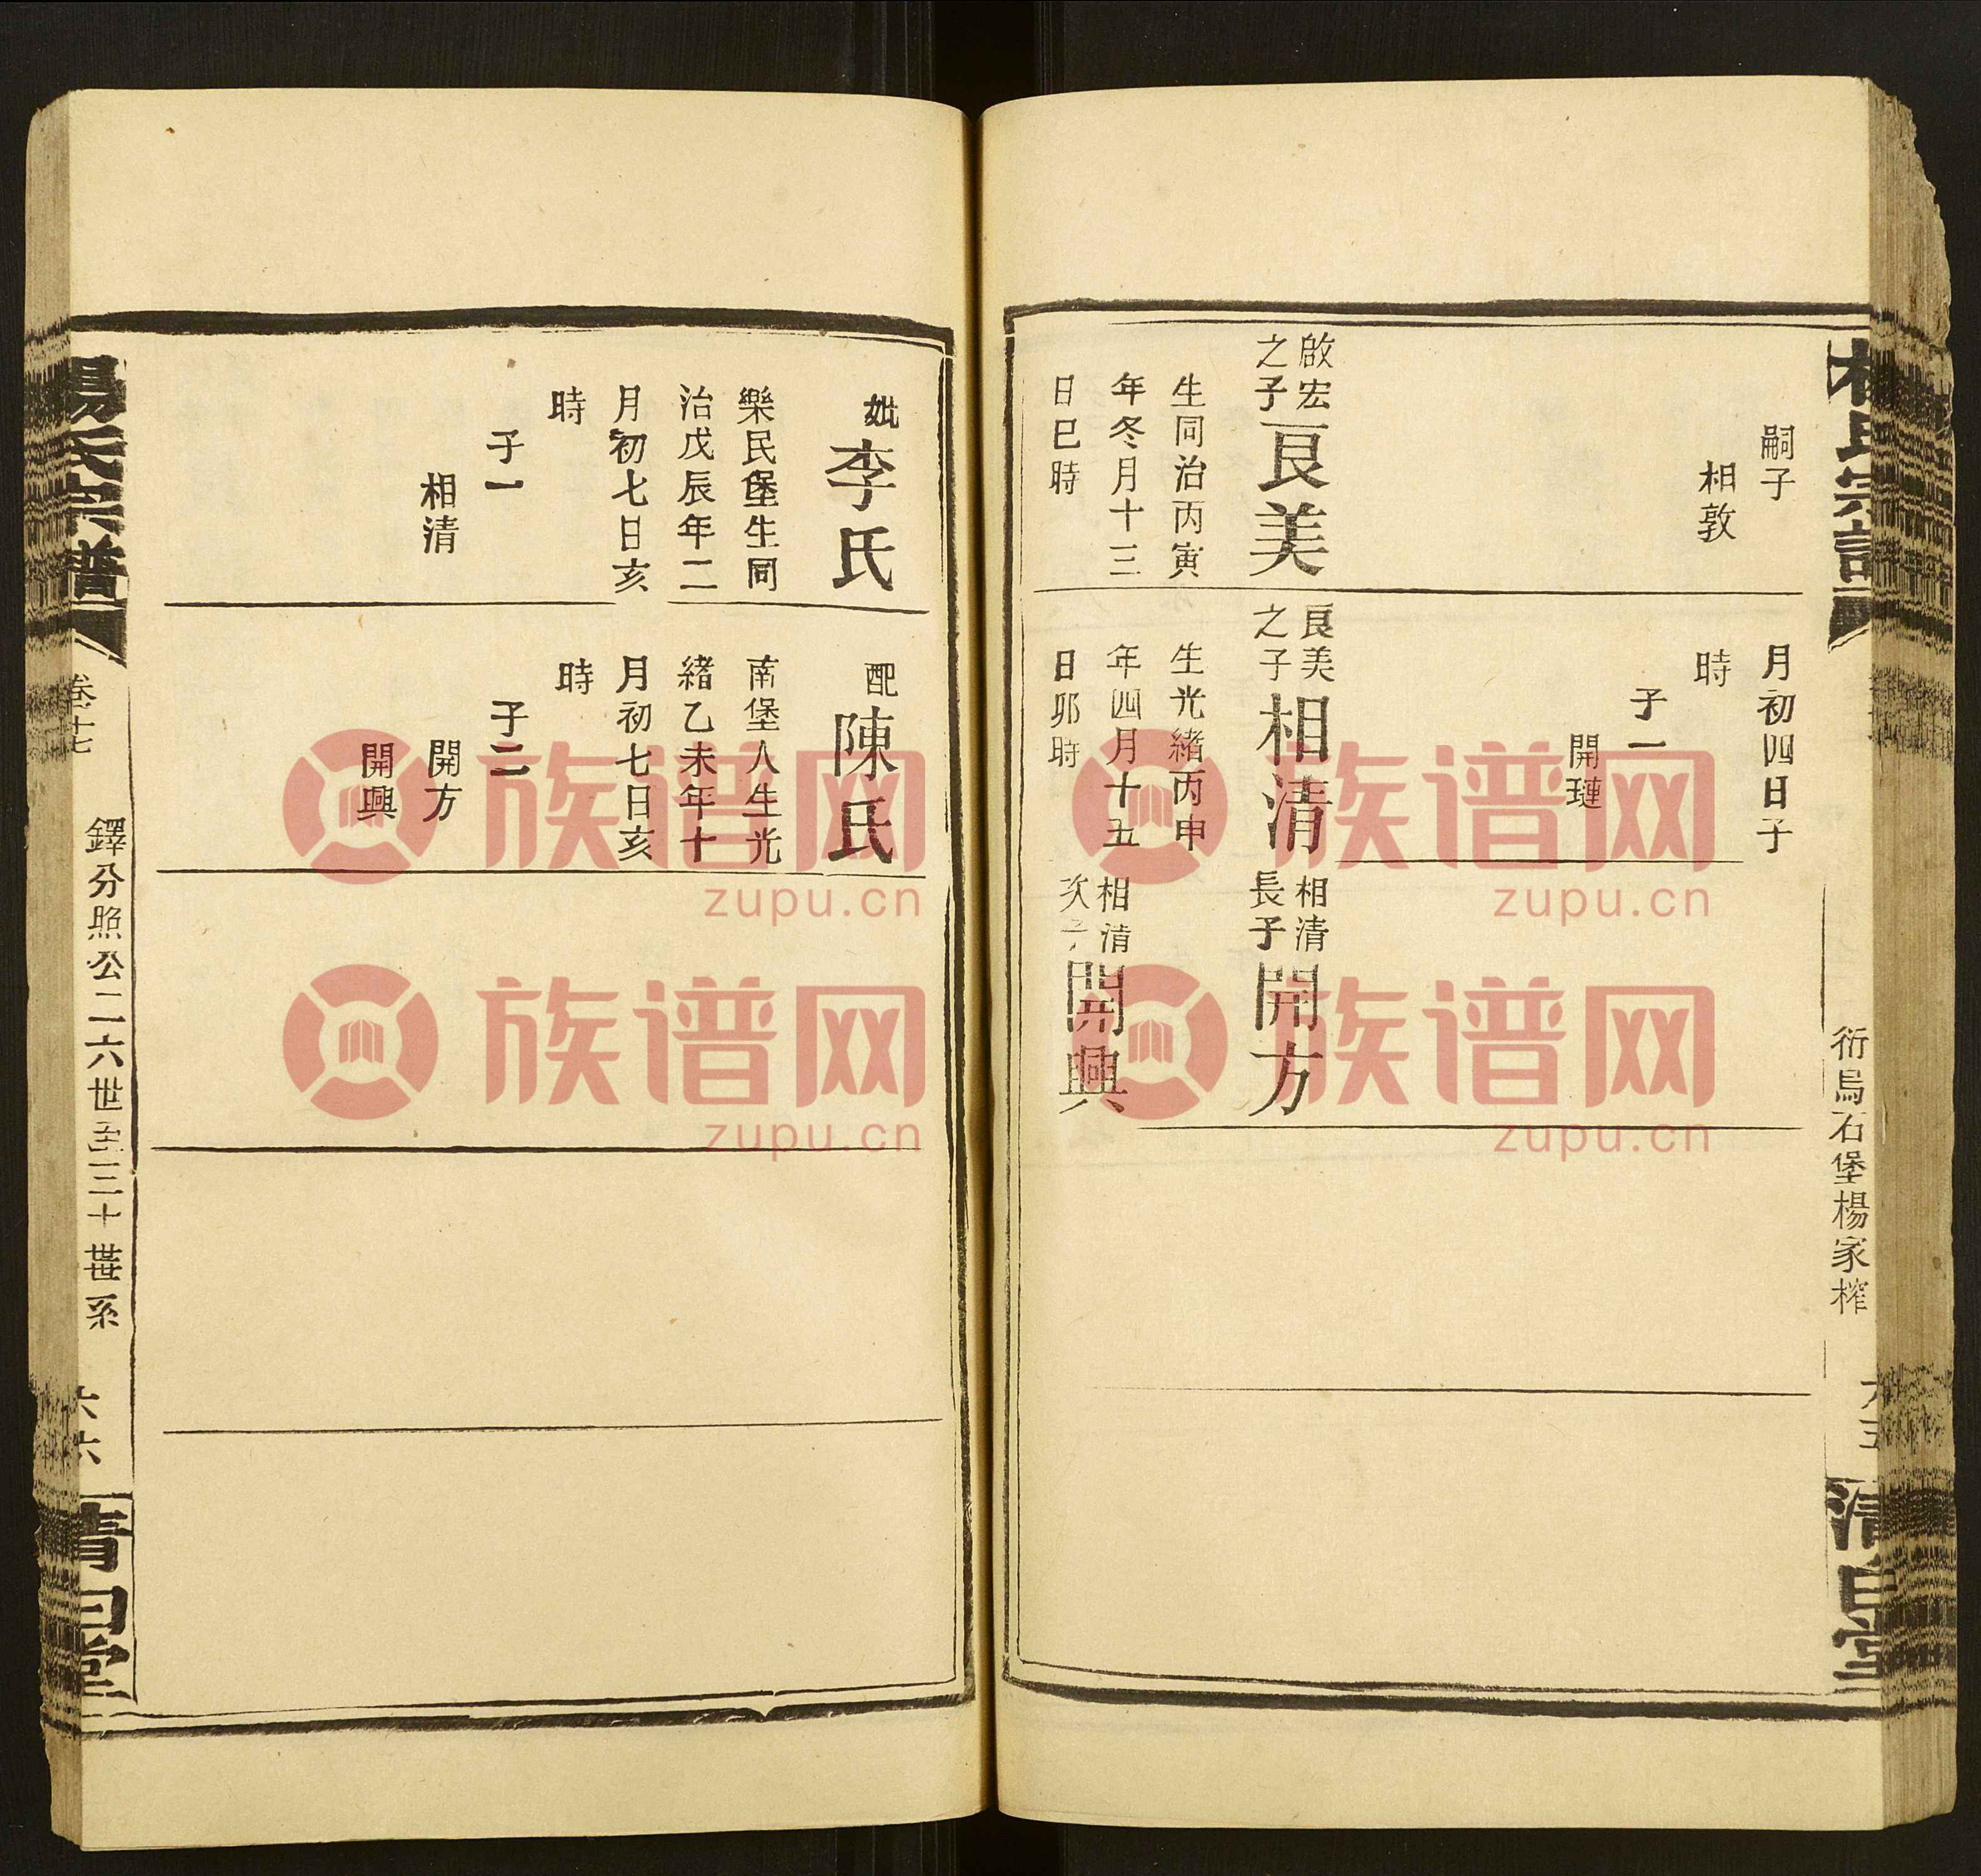 楊氏宗譜
衍烏石堡楊家榨
六五
清白堂
嗣子
相敦
啟宏
之子
良美
生同治丙寅
年冬月十三
日巳時
月初四日子
時
子一
開璉
良美
之子
相清
生光緒丙申
年四月十五
日卯時
相清
長子
開方
相清
次子
開興
妣
李氏
樂民堡生同
治戊辰年二
月初七日亥
時
子一
相清
配
陳氏
南堡人生光
緒乙未年十
月初七日亥
時
子二
開方
開興
楊氏宗譜
卷十七
鐸分照公二六世至三十世系
六六
清白堂
族谱网
zupu.cn
族谱网
zupu.cn
族谱网
zupu.cn
族谱网
zupu.cn